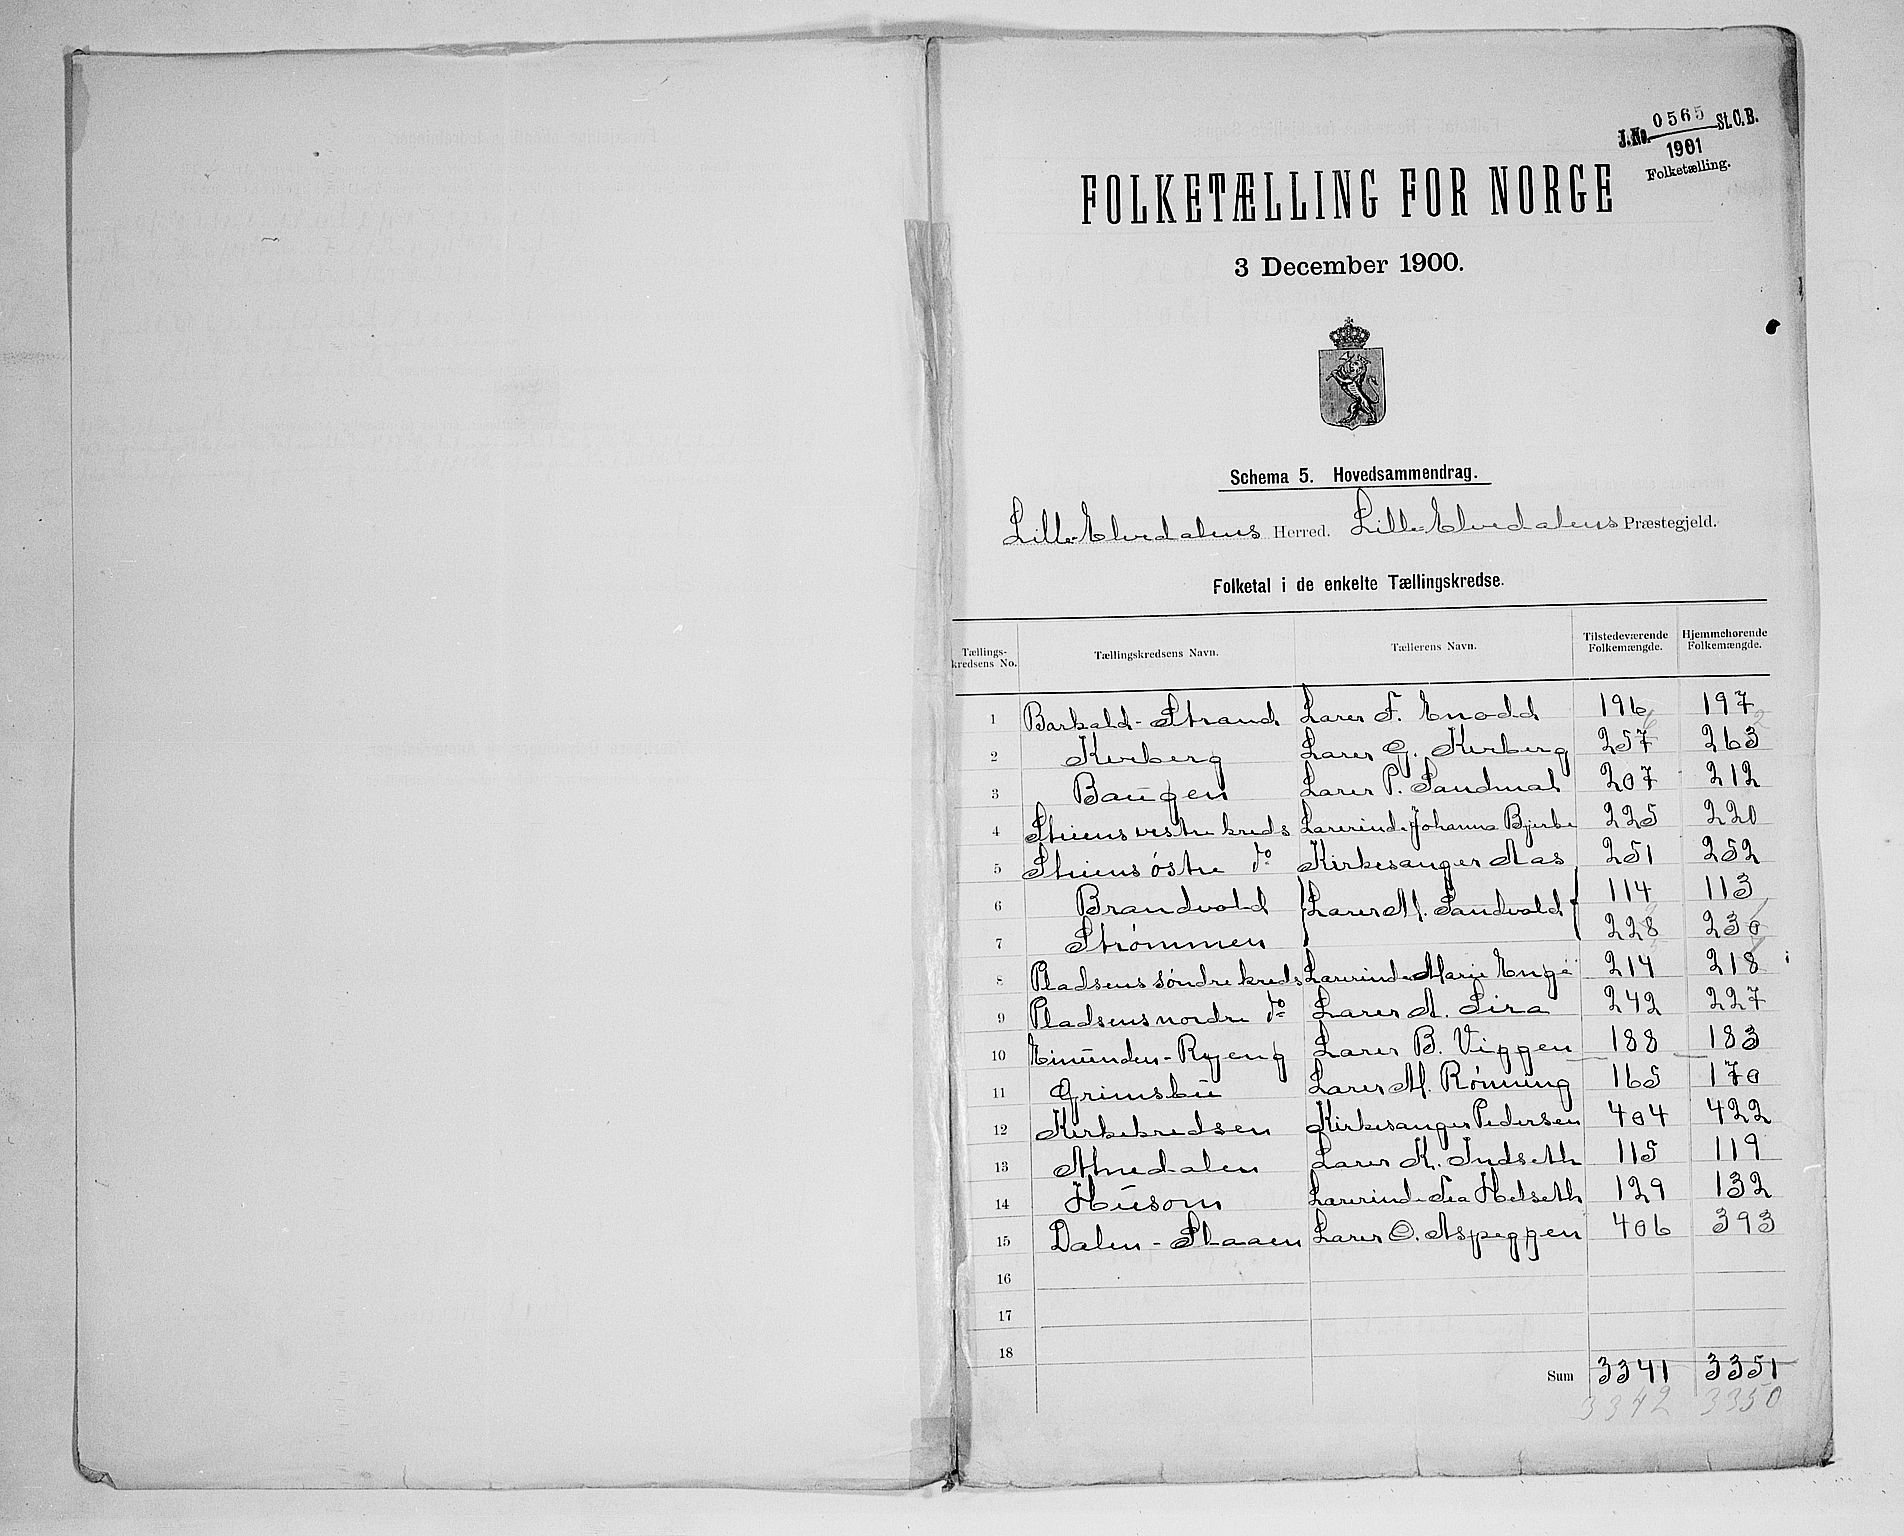 J.No. 0565 St.C.B.
1901
Folketælling.
FOLKETÆLLING FOR NORGE
3 December 1900.
Schema 5. Hovedsammendrag.
Lille-Elvedalens Herred. Lille-Elvedalens Præstegjeld.
Folketal i de enkelte Tællingskredse.
Tællings-kredsens No. Tællingskredsens Navn. Tællerens Navn. Tilstedeværende Folkemængde. Hjemmehørende Folkemængde.
1 Barkald-Strand Lærer F. Enodd 196 197
2 Kverberg Lærer G. Kverberg 257 263
3 Baugen Lærer P. Sandmæl 207 212
4 Steiens vestre kreds Lærerinde Johanna Bjerke 225 220
5 Steiens østre do Kirkesanger Aas 251 252
6 Brandvold Lærer M. Sandvold 114 113
7 Strømmen 228 230
8 Pladsens søndre kreds Lærerinde Marie Enge 214 218
9 Pladsens nordre do Lærer A. Lira 242 227
10 Einunden-Ryeng Lærer B. Viggen 188 183
11 Grimsbu Lærer M. Rønning 165 170
12 Kirkekredsen Kirkesanger Pedersen 404 422
13 Atnedalen Lærer K. Indseth 115 119
14 Husom Lærerinde Tea Helseth 129 132
15 Dalen-Slaaen Lærer O. Aspeggen 406 393
16
17
18
Sum 3341 3351
3342 3350